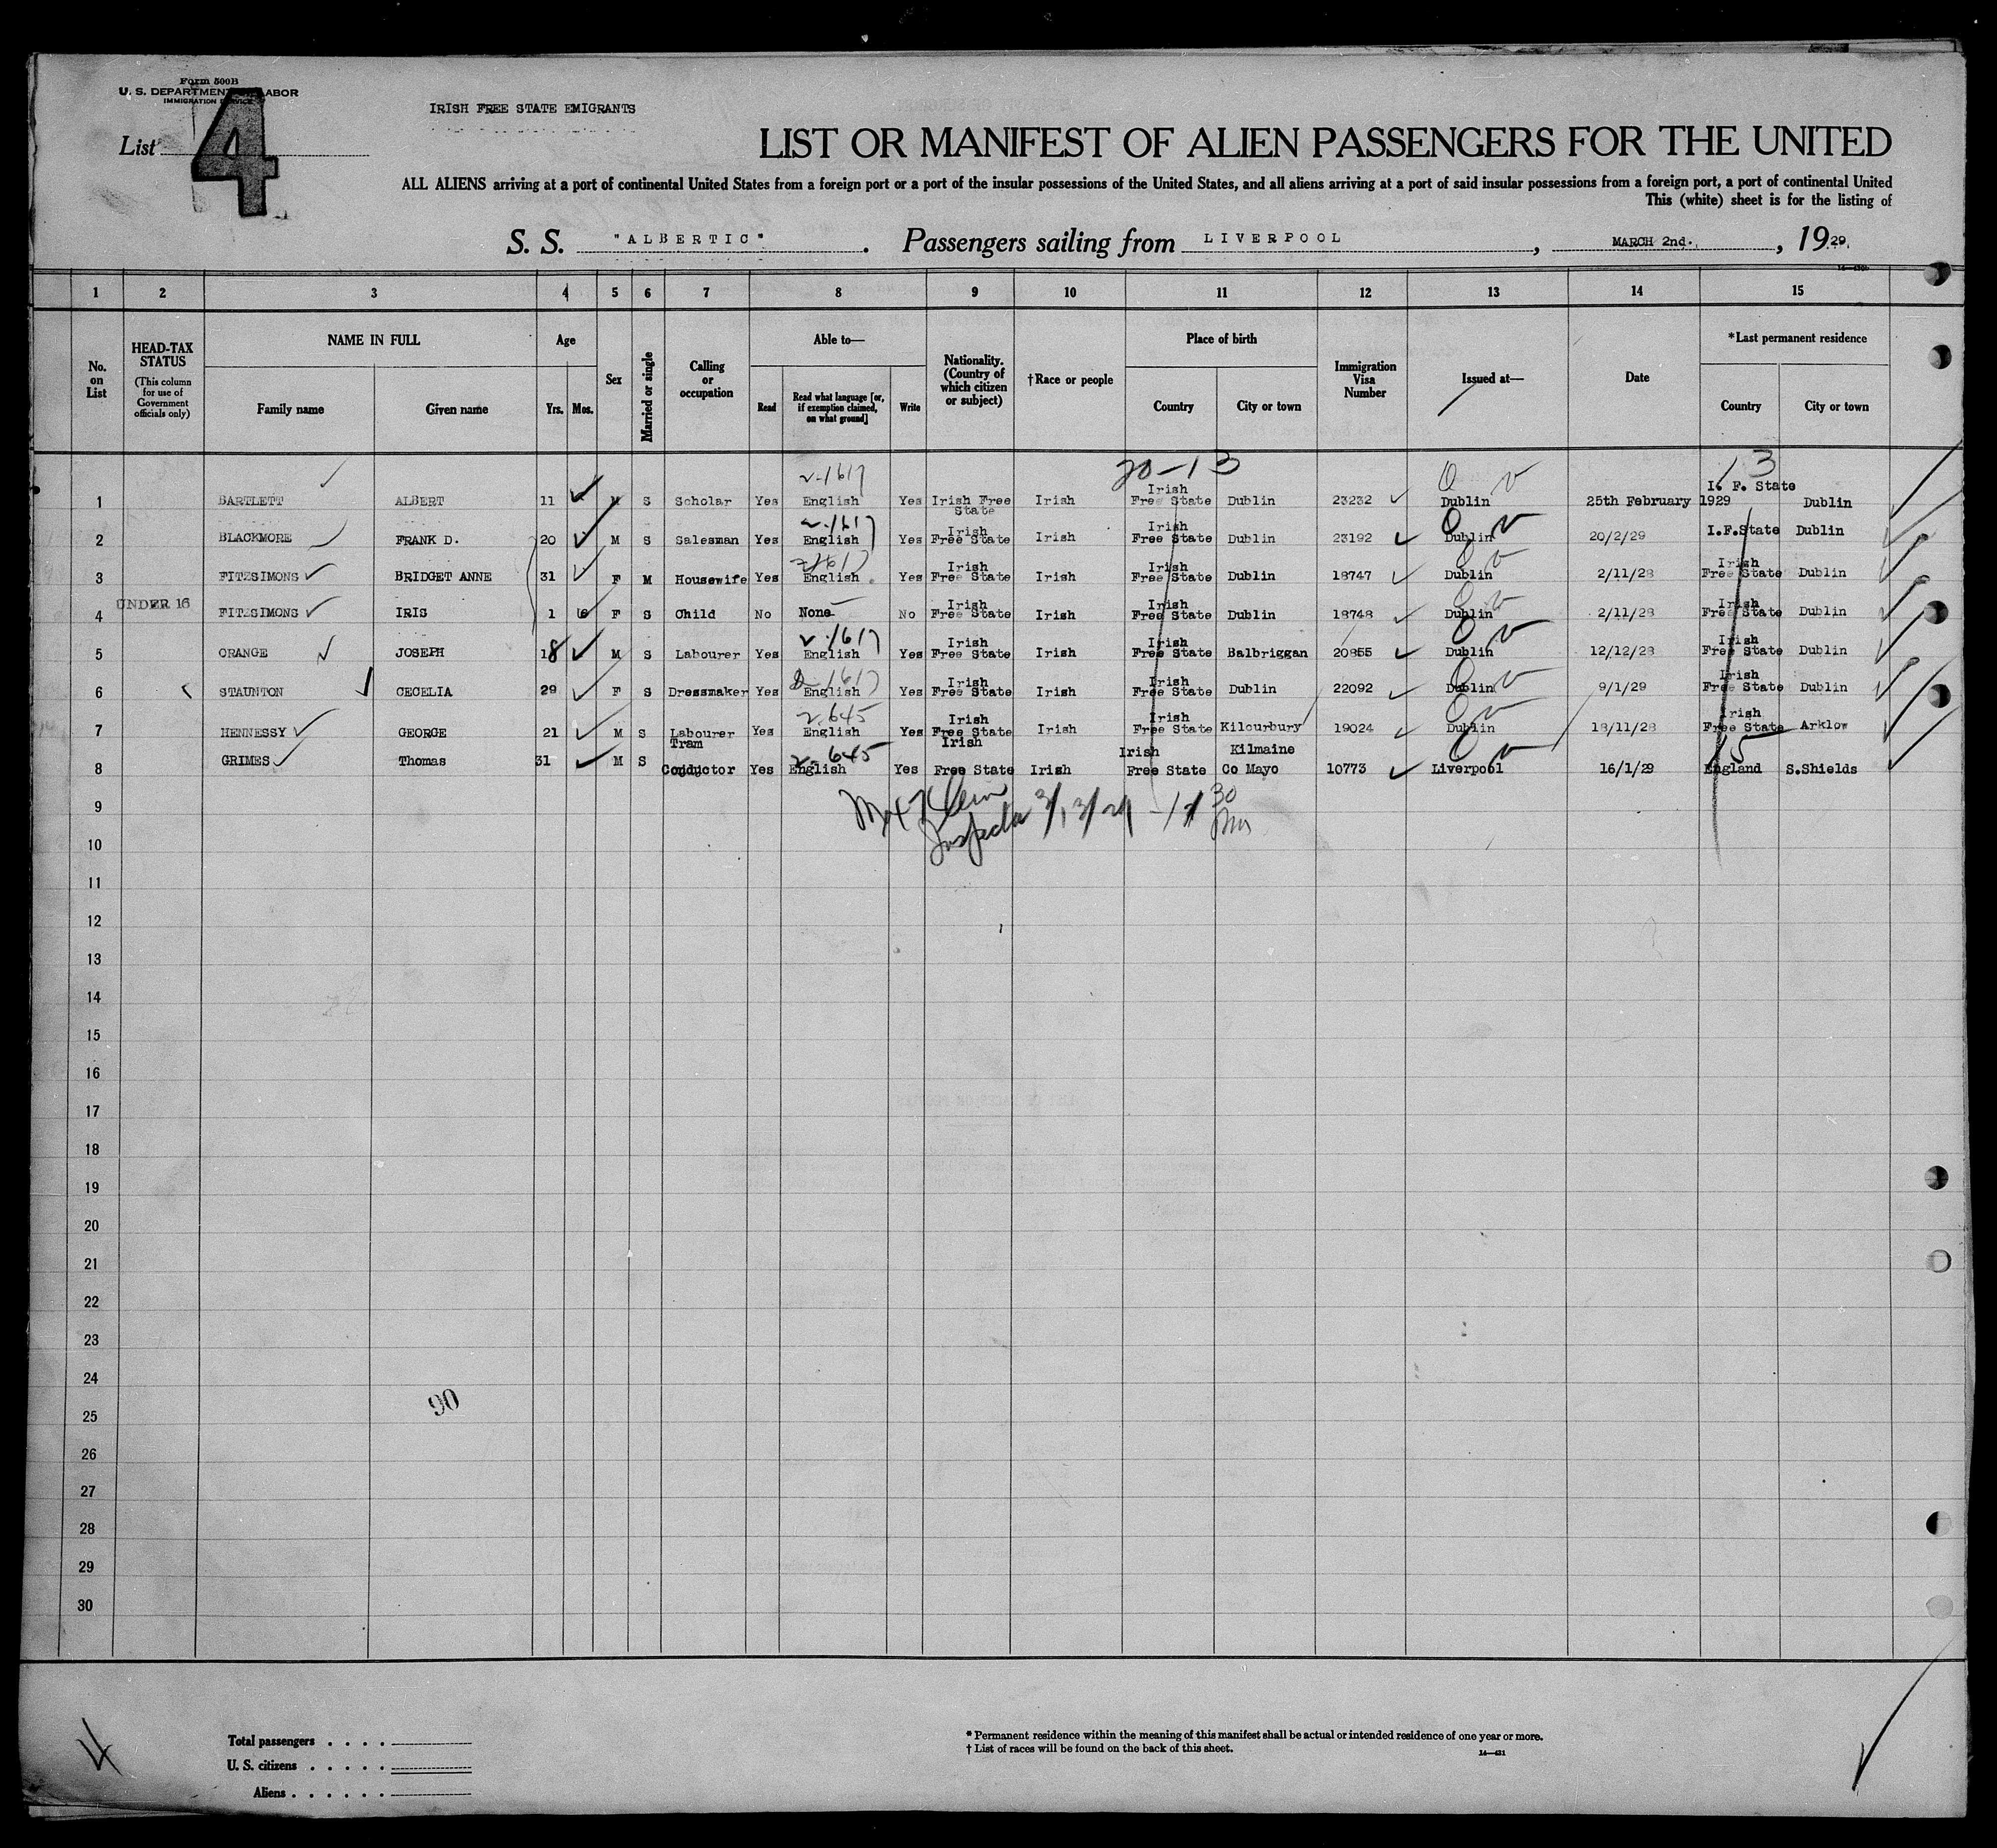 Form 500B
U. S. DEPARTMENT LABOR
IMMIGRATION SERVICE
List 4
IRISH FREE STATE EMIGRANTS
LIST OR MANIFEST OF ALIEN PASSENGERS FOR THE UNITED
ALL ALIENS arriving at a port of continental United States from a foreign port or a port of the insular possessions of the United States, and all aliens arriving at a port of said insular possessions from a foreign port, a port of continental United
This (white) sheet is for the listing of
S. S. "ALBERTIC". Passengers sailing from LIVERPOOL, MARCH 2nd., 1929.
1 2 3 4 5 6 7 8 9 10 11 12 13 14 15
No. on List
HEAD-TAX STATUS (This column for use of Government officials only)
NAME IN FULL
Family name Given name
Age
Yrs. Mos.
Sex
Married or single
Calling or occupation
Able to—
Read Read what language [or, if exemption claimed, on what ground] Write
Nationality. (Country of which citizen or subject)
†Race or people
Place of birth
Country City or town
Immigration Visa Number
Issued at—
Date
*Last permanent residence
Country City or town
20-13
13
2-1617
1 BARTLETT ALBERT 11 M S Scholar Yes English Yes Irish Free State Irish Irish Free State Dublin 23232 Dublin 25th February 1929 I. F. State Dublin
2-1617
2 BLACKMORE FRANK D. 20 M S Salesman Yes English Yes Irish Free State Irish Irish Free State Dublin 23192 Dublin 20/2/29 I.F.State Dublin
3 FITZSIMONS BRIDGET ANNE 31 F M Housewife Yes English Yes Irish Free State Irish Irish Free State Dublin 18747 Dublin 2/11/28 Irish Free State Dublin
4 UNDER 16 FITZSIMONS IRIS 1 6 F S Child No None No Irish Free State Irish Irish Free State Dublin 18748 Dublin 2/11/28 Irish Free State Dublin
2-1617
5 ORANGE JOSEPH 18 M S Labourer Yes English Yes Irish Free State Irish Irish Free State Balbriggan 20855 Dublin 12/12/28 Irish Free State Dublin
2-1617
6 STAUNTON CECELIA 29 F S Dressmaker Yes English Yes Irish Free State Irish Irish Free State Dublin 22092 Dublin 9/1/29 Irish Free State Dublin
2-645
7 HENNESSY GEORGE 21 M S Labourer Yes English Yes Irish Free State Irish Irish Free State Kilcurbury 19024 Dublin 18/11/28 Irish Free State Arklow
2-645
15
8 GRIMES Thomas 31 M S Tram Conductor Yes English Yes Irish Free State Irish Irish Free State Kilmaine Co Mayo 10773 Liverpool 16/1/29 England S.Shields
9
Inspector
10
11
12
13
14
15
16
17
18
19
20
21
22
23
24
90
25
26
27
28
29
30
Total passengers . . . .
U. S. citizens . . . . .
Aliens . . . . . .
* Permanent residence within the meaning of this manifest shall be actual or intended residence of one year or more.
† List of races will be found on the back of this sheet.
14—431